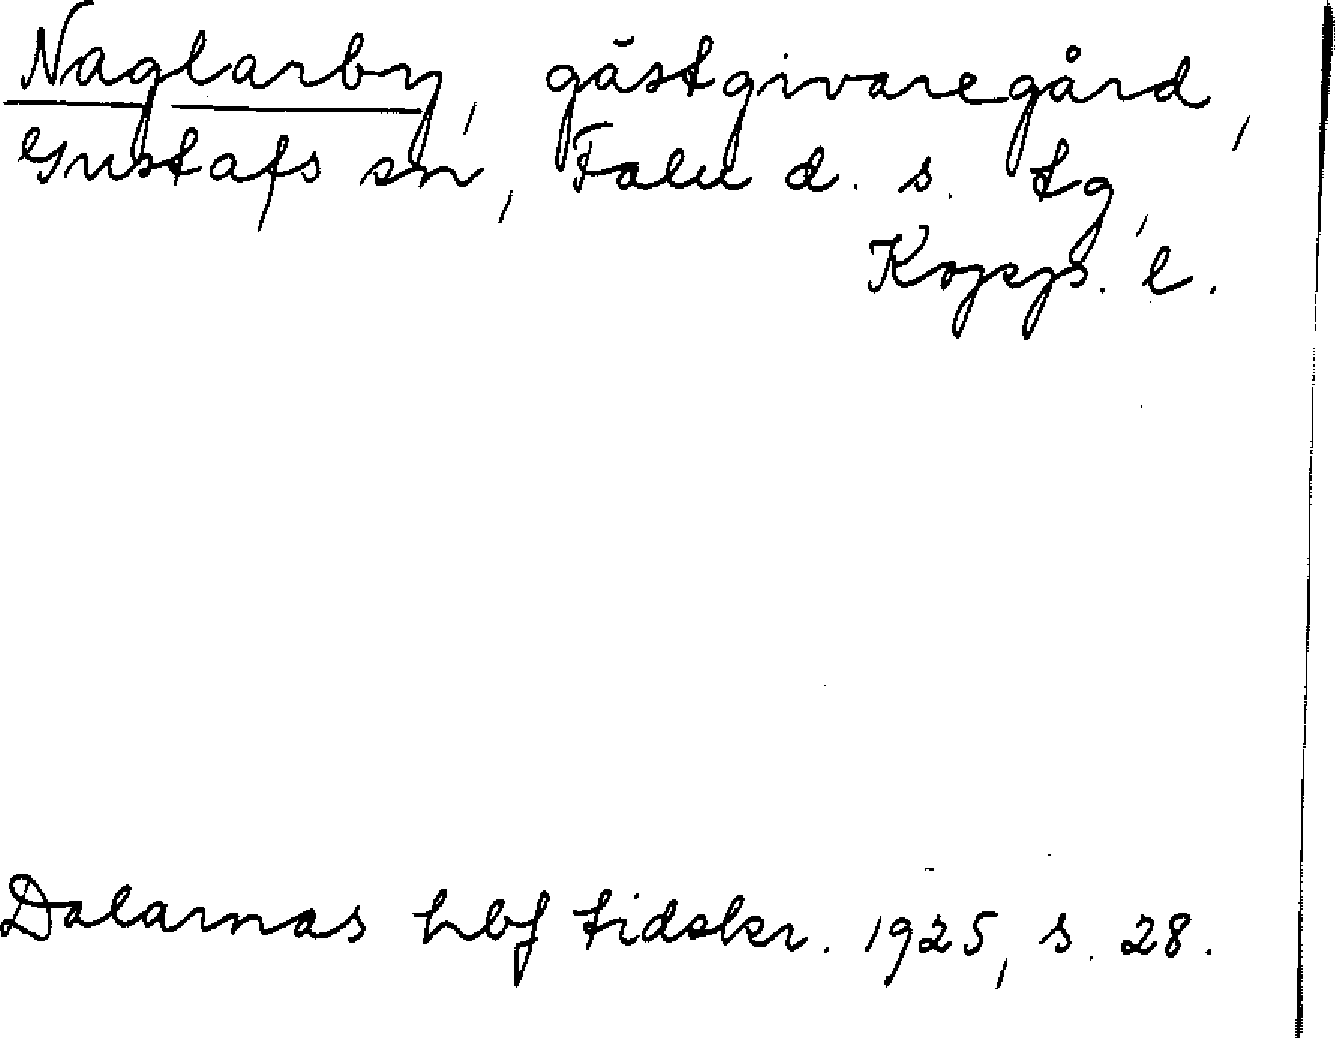 Naglarby, gästgivaregård,
Gustafs sn, Falu d. s. tg,
Kopp. l.
Dalarnas hbf tidskr. 1925, s. 28.